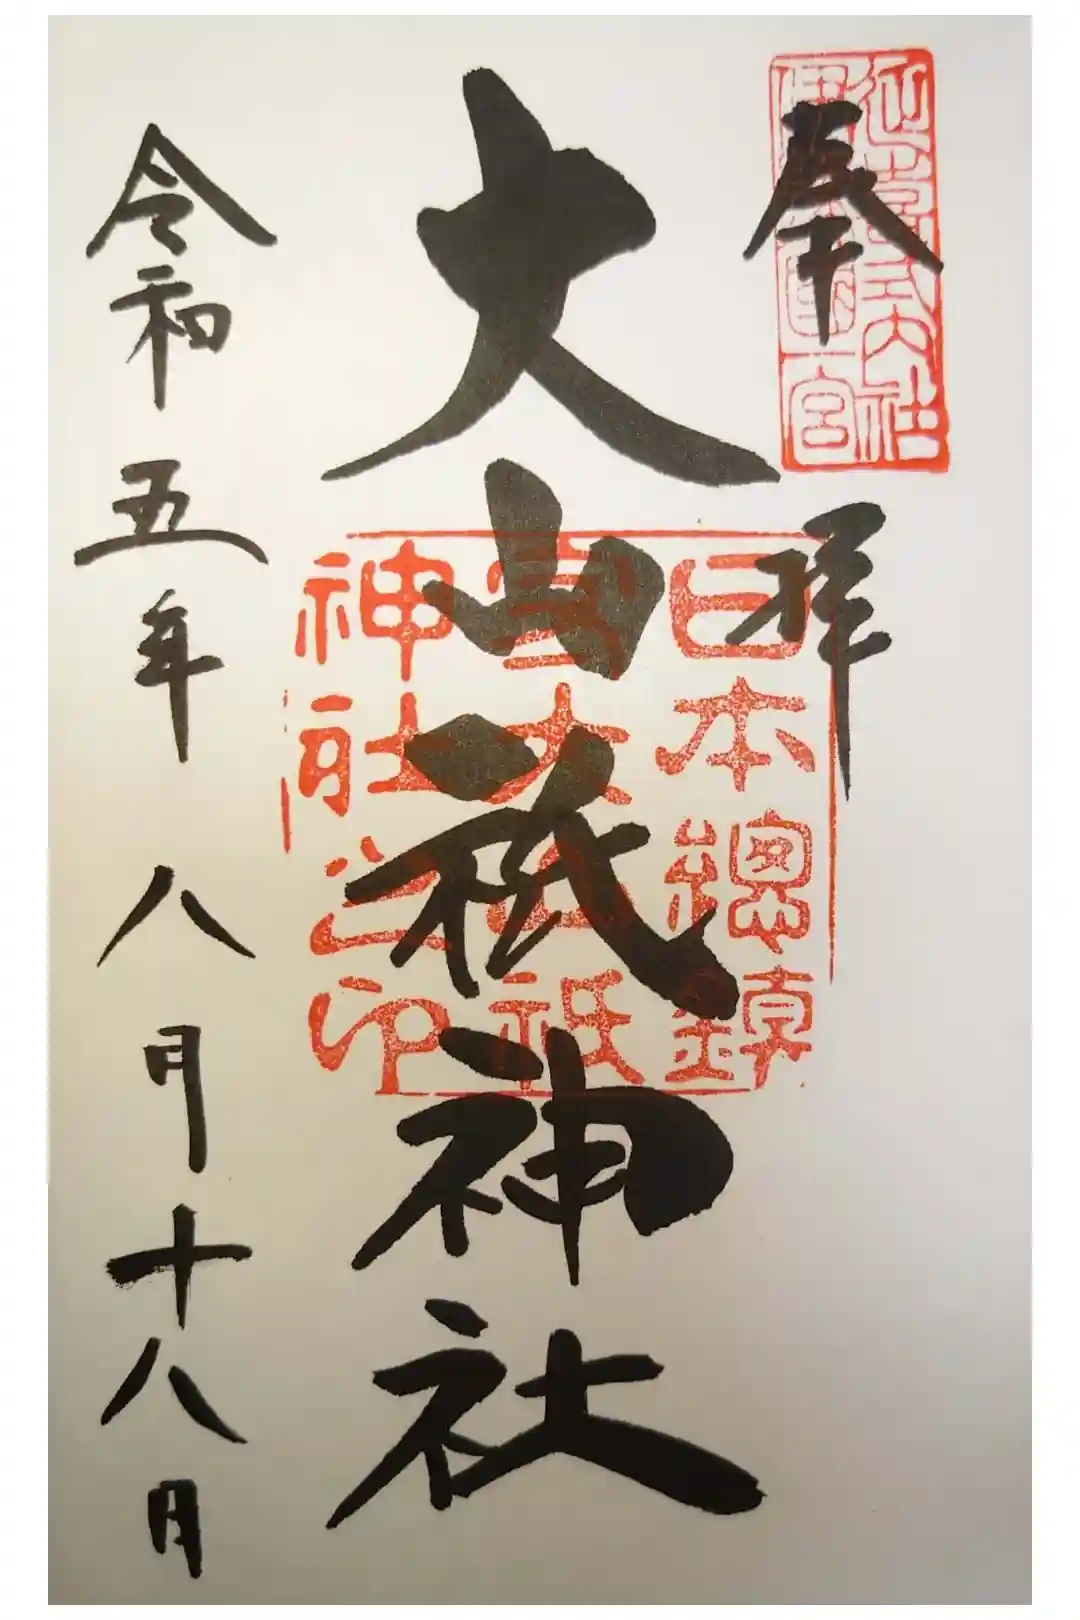 奉拝
延喜式内社
伊豫國一宮
大山祇神社
日本總鎮
守大山祇
神社之印
令和五年八月十八日